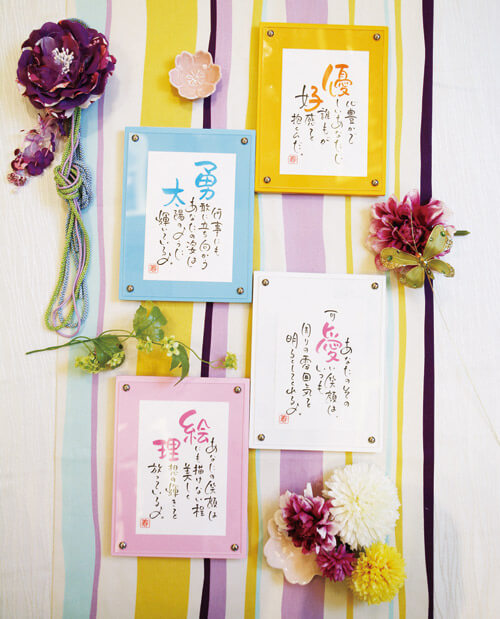 心豊かで
優しいあなたに
誰もが
好感を
抱くんだ。
何事にも
勇敢に立ち向かう
あなたの姿は
太陽のように
輝いているよ。
あなたのその
可愛い笑顔は、
いつも
周りの雰囲気を
明るくしてくれるよ。
あなたの笑顔は
絵にも描けない程
美しく
理想の輝きを
放っているよ。